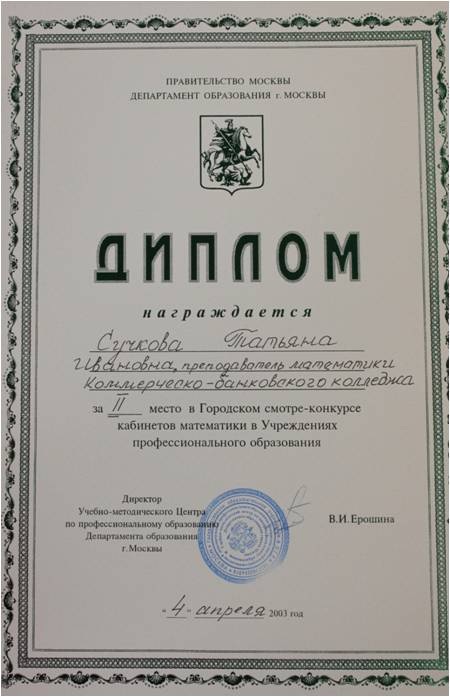 ПРАВИТЕЛЬСТВО МОСКВЫ
ДЕПАРТАМЕНТ ОБРАЗОВАНИЯ г. МОСКВЫ
ДИПЛОМ
награждается
Сучкова Татьяна
Ивановна, преподаватель математики
Коммерческо-банковского колледжа
за II место в Городском смотре-конкурсе
кабинетов математики в Учреждениях
профессионального образования
Директор
Учебно-методического Центра
по профессиональному образованию
Департамента образования
г.Москвы
В.И.Ерошина
"4" апреля 2003 год